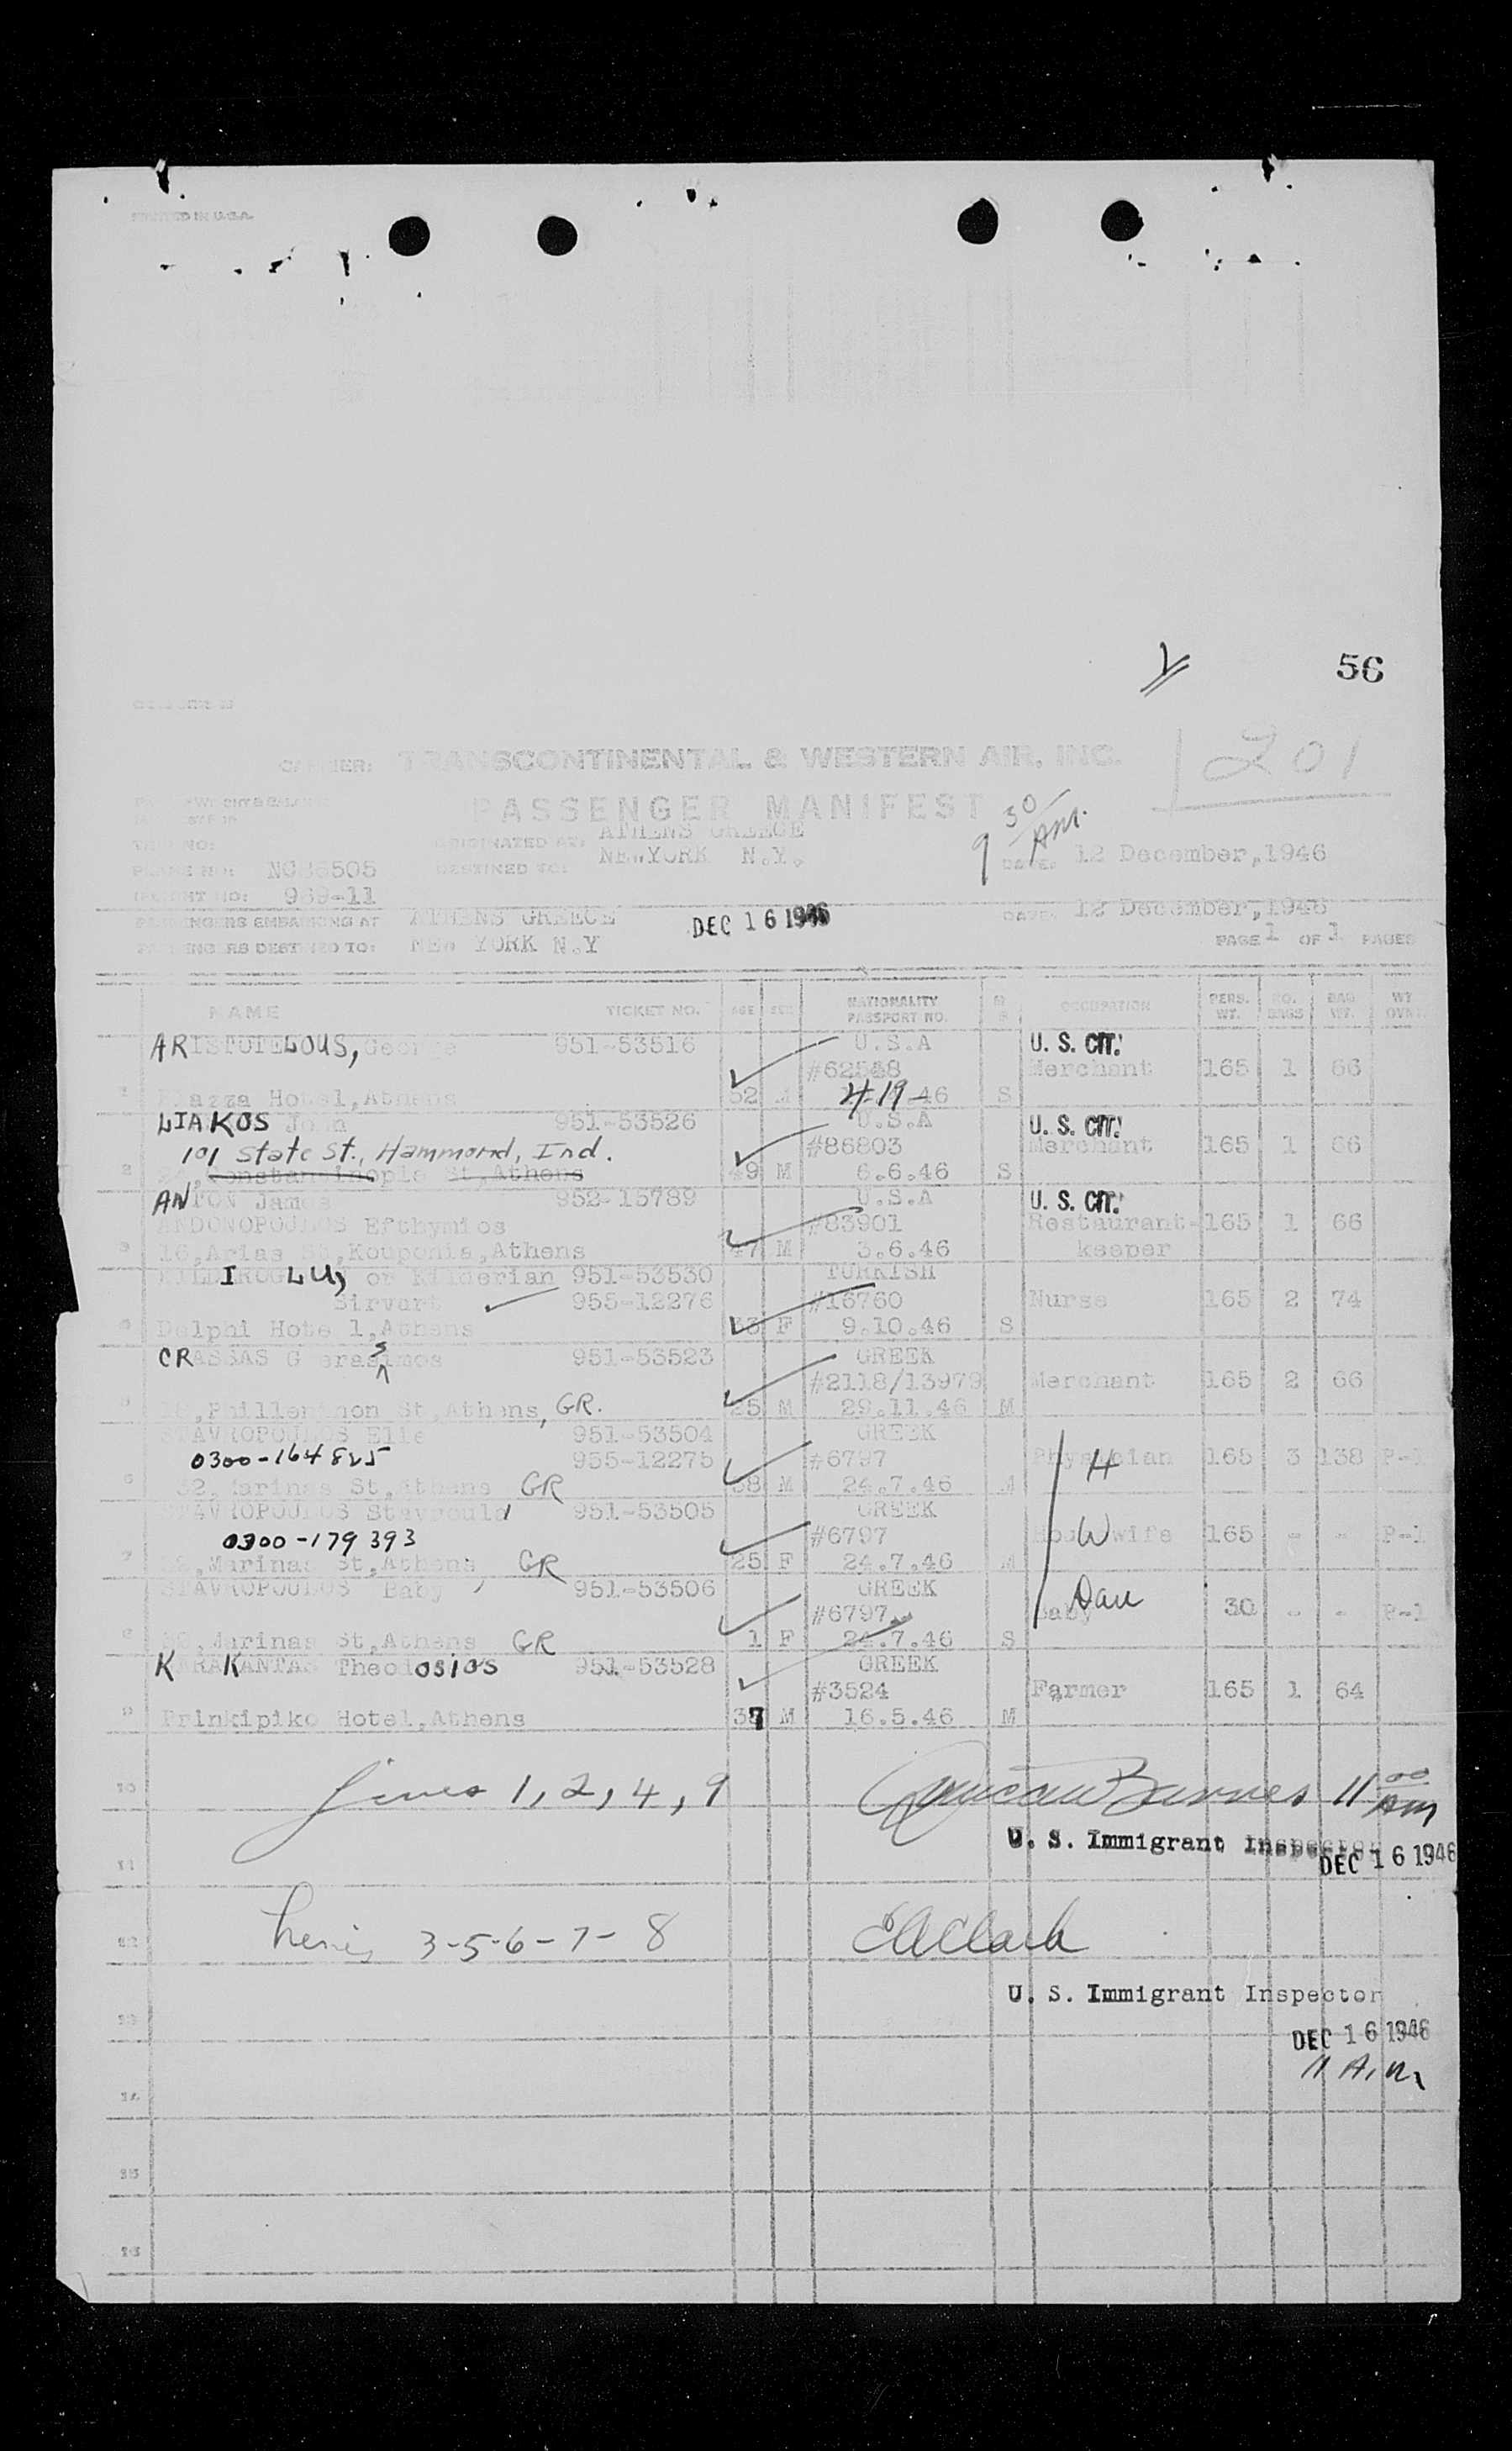 PRINTED IN U.S.A.
56
CARRIER: TRANSCONTINENTAL & WESTERN AIR, INC.
1201
PASSENGER MANIFEST
9 30 AM.
TRIP NO:
ORIGINATED AT: ATHENS GREECE
PLANE NO: NC86505 DESTINED TO: NEWYORK N.Y. DATE: 12 December, 1946
FLIGHT NO: 969-11
PASSENGERS EMBARKING AT ATHENS GREECE DEC 16 1946 DATE: 12 December, 1946
PASSENGERS DESTINED TO: NEW YORK N.Y PAGE 1 OF 1 PAGES
NAME TICKET NO. AGE SEX NATIONALITY PASSPORT NO. M S OCCUPATION PERS. WT. NO. BAGS BAG WT. WT
ARISTOTELOUS, George 951-53516 U.S.A U.S. CIT.
Merchant 165 1 66
1 Plazza Hotel, Athens 52 M 4-19-46 S
LIAKOS John 951-53526 U.S.A U.S. CIT.
101 State St., Hammond, Ind. #86803 Merchant 165 1 66
2 St, Athens 49 M 6.6.46 S
ANTON James 952-15789 U.S.A U.S. CIT.
ANDONOPOULOS Efthymios #83901 Restaurant- 165 1 66
3 16, Arias St, Kouponia, Athens 47 M 3.6.46 keeper
or Kilderian 951-53530 TURKISH
Sirvart 955-12276 #16760 Nurse 165 2 74
4 Delphi Hote l, Athens F 9.10.46 S
CRASSAS Gerasimos 951-53523 GREEK
s
#2118/13979 Merchant 165 2 66
5 St, Athens, GR. 25 M 29.11.46 M
STAVROPOULOS Elie 951-53504 GREEK
0300-164825 955-12275 #6797 Physician H 165 3 138 P-1
6 32, Marinas St, Athens GR 38 M 24.7.46 M
STAVROPOULOS Stavroula 951-53505 GREEK
0300-179393 #6797 W wife 165 - - P-1
7 32, Marinas St, Athens GR 25 F 24.7.46 M
STAVROPOULOS Baby 951-53506 GREEK
#6797 Baby Dau 30 - - P-1
8 32, Marinas St, Athens GR 1 F 24.7.46 S
KARAKANTAS Theodosios 951-53528 GREEK
#3524 Farmer 165 1 64
9 Prinkipiko Hotel, Athens 37 M 16.5.46 M
10 Lines 1, 2, 4, 9 Duncan Barnes 11 00 AM
U. S. Immigrant Inspector
11 DEC 16 1946
12 Lines 3-5-6-7-8 EAClark
U. S. Immigrant Inspector
13 DEC 16 1946
11 A.M.
14
15
16